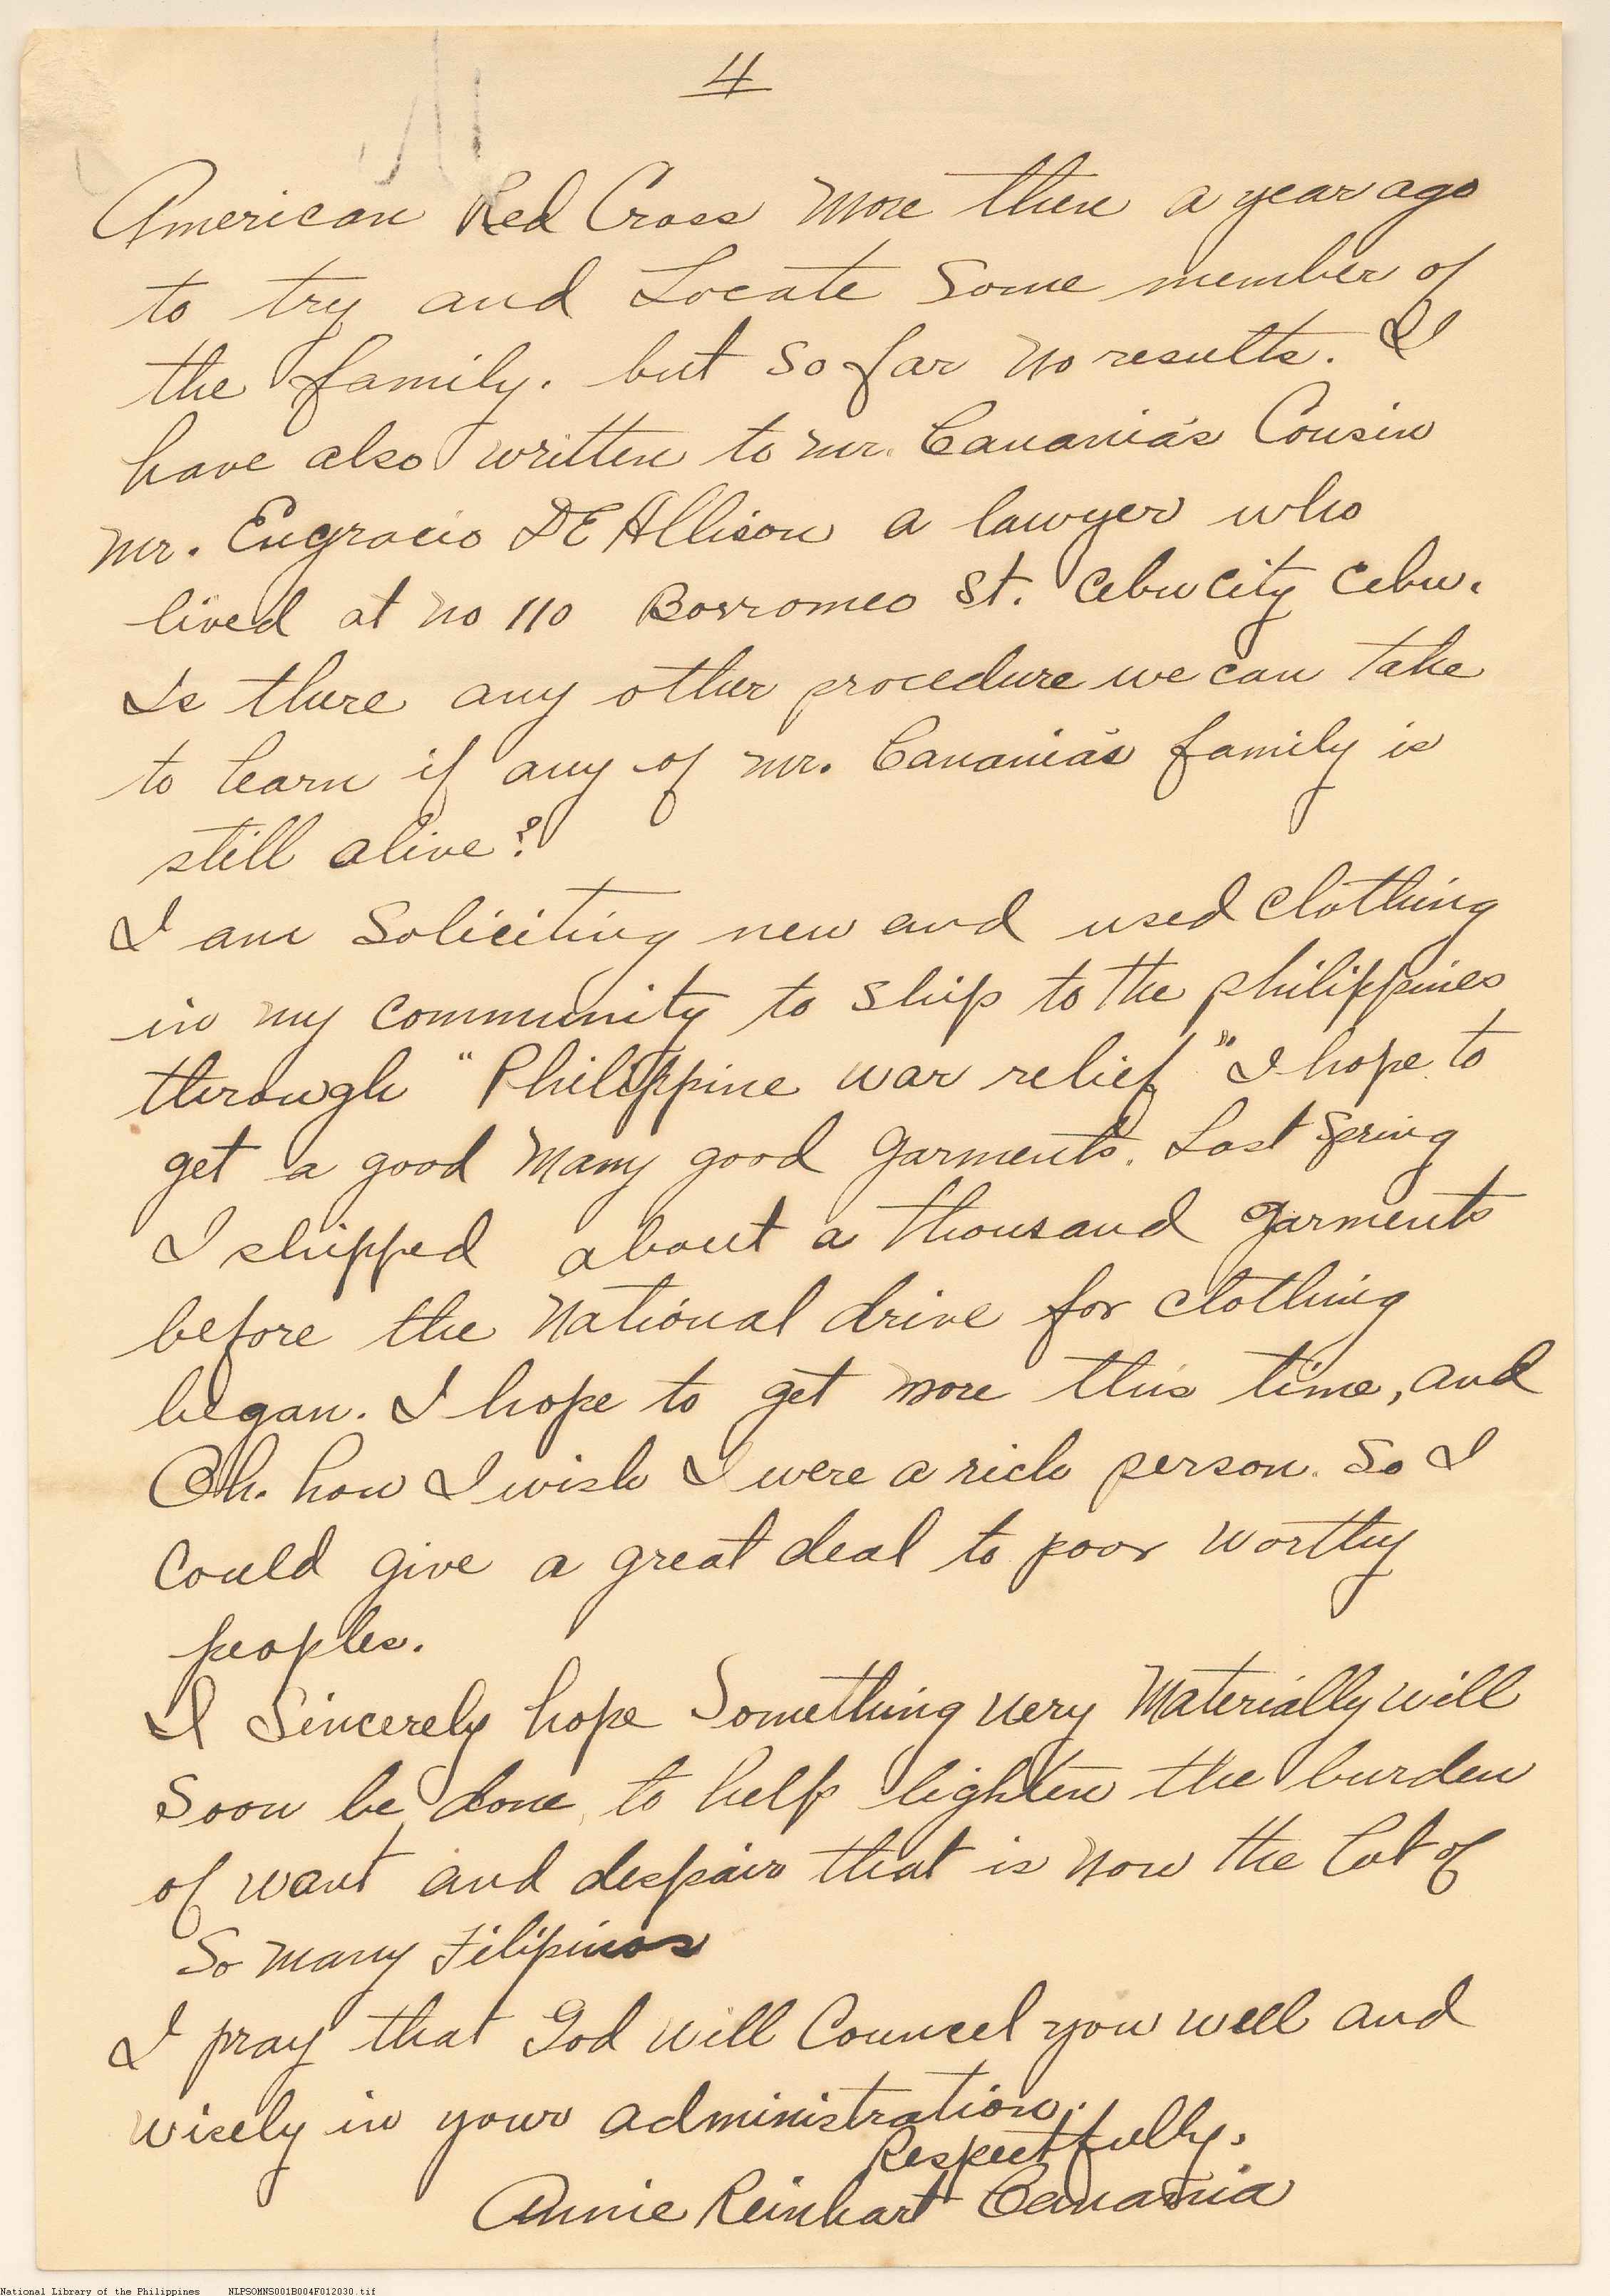 4
American Red Cross more then a year ago
to try and Locate Some member of
the family. but so far no results. I
have also written to mr. Canania's Cousin
mr. Eugracio DE Allison a lawyer who
lived at no 110 Borromeo St. Cebu City Cebu.
Is there any other procedure we can take
to learn if any of mr. Canania's family is
still alive?
I am Soliciting new and used clothing
in my community to ship to the philippines
through "Philippine war relief" I hope to
get a good many good garments. Last Spring
I shipped about a thousand garments
before the National drive for clothing
began. I hope to get more this time, and
Oh. how I wish I were a rich person. So I
Could give a great deal to poor worthy
peoples.
I Sincerely hope Something very Materially will
Soon be done, to help lighten the burden
of want and despair that is now the Lot of
So many Filipinos
I pray that God will Councel you well and
wisely in your administration.
Respectfully.
Annie Reinhart Canania
National Library of the Philippines NLPSOMNS001B004F012030.tif